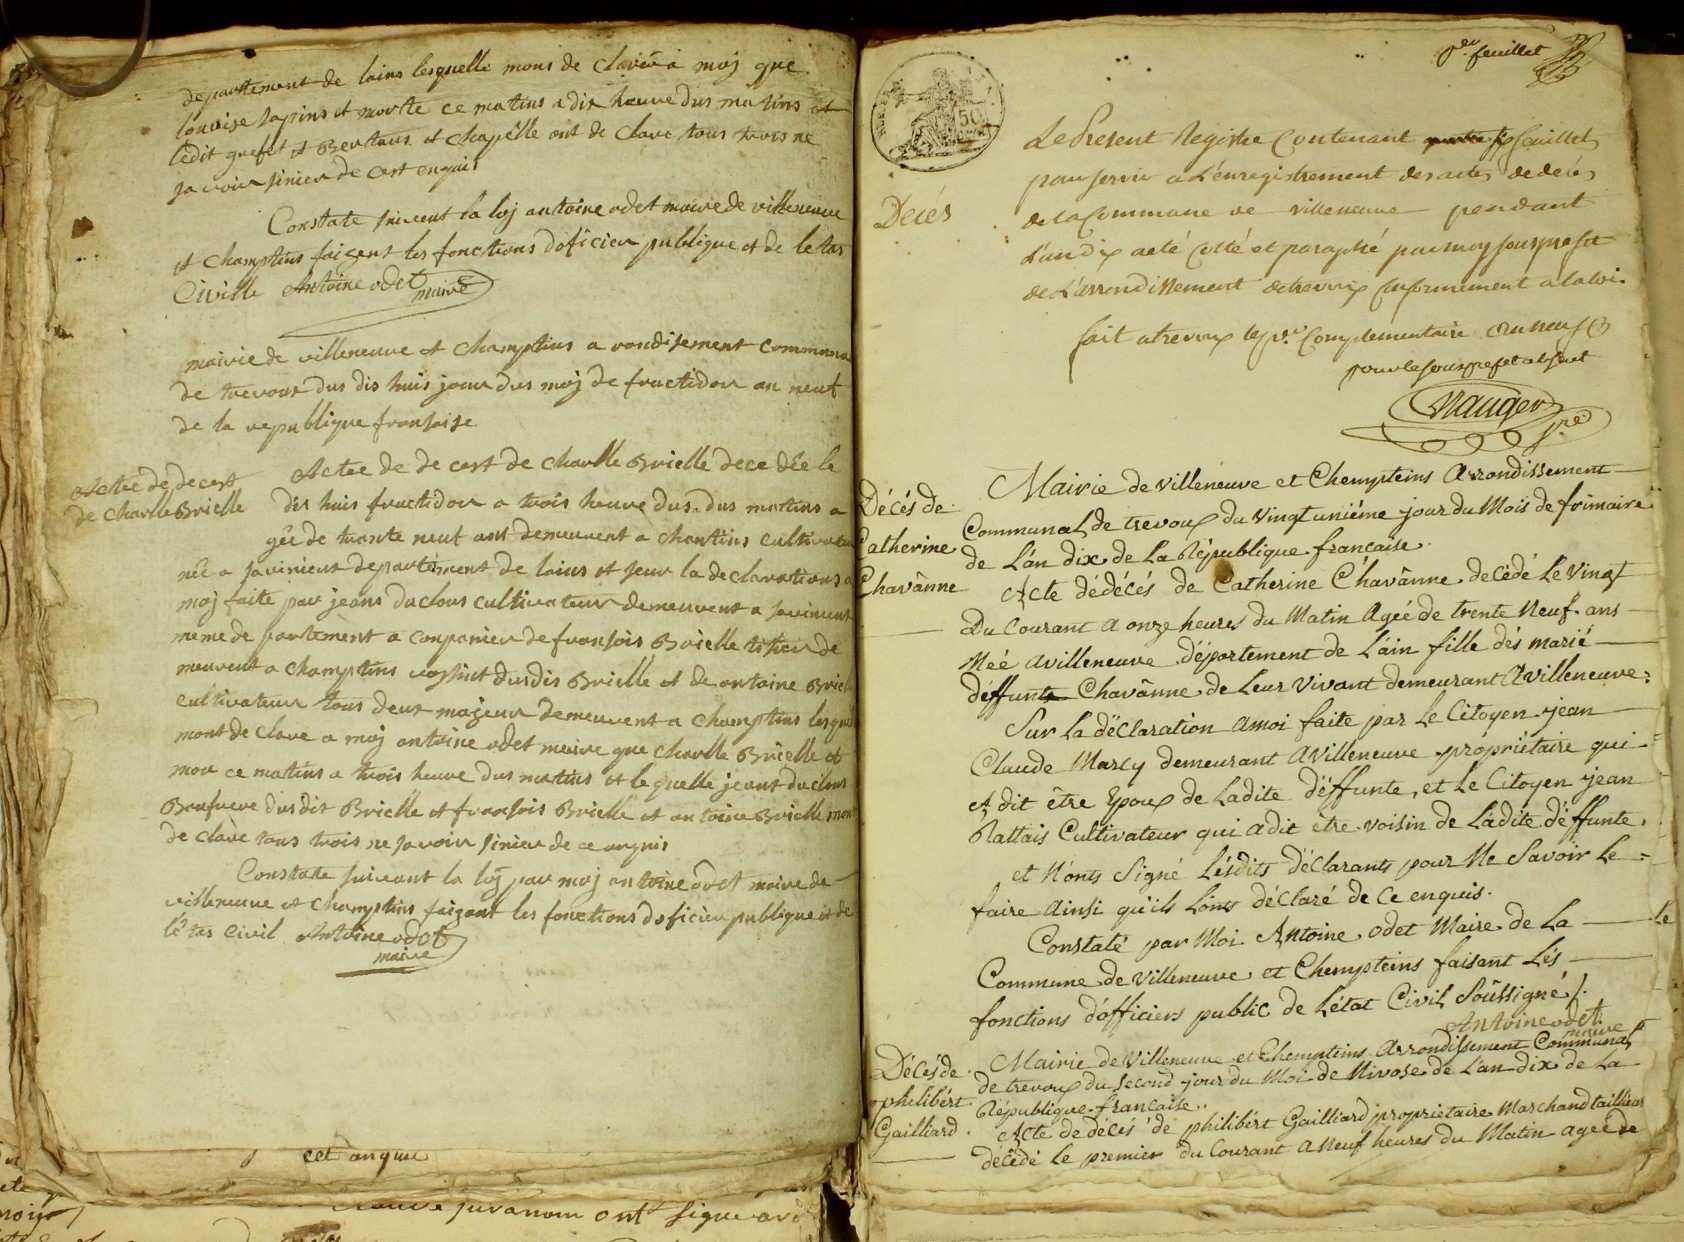 departement de lains lesquelle mons de clavéé a moj que
louvise sapins et morte ce matins a dix heure dus matins et
ledit grefet et Bertaus et chapélle ont de clare tous trois ne
savoir sinier de cest enquis
Constate suivent la loj antoine odet maire de villeneuve
et Champtins faisent les fonctions doficier publique et de le tas
Civille Antoine odet
maire
mairie de villeneuve et champtins a rondisement commun
de trevoux dus dis huis jour dus moj de fructidor an neuf
de la republique fransaise
Actee de decest
de Charlle Brielle
Actee de de cest de charlle Brielle decedée le
dis huis fructidor a trois heure dus dus matins a
gée de trante neuf ant demeurent a chantins cultivateur
née a savinieux departement de lains et seur la declarations a
moj faite par jeans duclous cultivateur demeurent a savinieux
meme de partement a conpanier de fransois Brielle titier de
meurent a champtins cossint dusdis Brielle et de antoine Briell
cultivateur tous deux majeur demeurent a champtins lesquel
mont de clare a moj antoine odet meire que charlle Brielle et
mor ce matins a trois heure dus matins et le quelle jeans duclous
Beaufrere dusdit Brielle et fransois Brielle et antoine Brielle mont
de clare tous trois ne savoir sinier de ce enquis
Constate suivant la loj par moj antoine odet maire de
villeneuve et champtins faizant les fonctions doficier publique et de
létas civil Antoine odet
maire
cet anque
ont signé avec
feuillet
50
Décés
Le Present Registre Contenant six feuillets
pour servir a L'énregistrement des actes de décés
de la Commune de villeneuve pendant
L'an dix a eté Cotté et paraphé par moy souspréfet
de L'arrondissement de trevoux Conformement a la loi.
fait a trevoux le pr. Complementaire an neuf
pour le sousprefet absent
Nauger
pre
Décés de
Catherine
Chavânne
Mairie de villeneuve et Chempteins Arrondissement
Communal de trevoux du vingt uniéme jour du Mois de frimaire
de L'an dix de la République francaise.
Acte dédécés de Catherine Chavânne decédé Le vingt
Du Courant a onze heures du Matin Agée de trente Neuf ans
Néé avilleneuve département de L'ain fille dés marié
déffunts Chavânne de Leur vivant demeurant Avilleneuve
Sur La déClaration amoi faite par Le Citoyen jean
Claude Marcy demeurant Avilleneuve propriétaire qui
a dit être Epoux de Ladite déffunte, et Le Citoyen jean
Rattais Cultivateur qui a dit être voisin de Ladite déffunte
et N'onts Signé Lésdits déClarants pour Ne Savoir Le
faire Ainsi qu'ils L'onts déClaré de Ce enquis.
Constaté par Moi Antoine odet Maire de La
Commune de villeneuve et Chempteins faisant Lés
fonctions d'officiers public de L'état Civil Soussigné
Antoine odet
maire
Décés de
philibért
Gailliard
Mairie de villeneuve et Chempteins Arrondissement Communal
de trevoux du second jour du Moi de Nivose de L'an dix de La
République francaise.
Acte de décés de philibért Gailliard propriétaire Marchand taillieur
décédé Le premier du Courant a Neuf heures du Matin agée de
Le